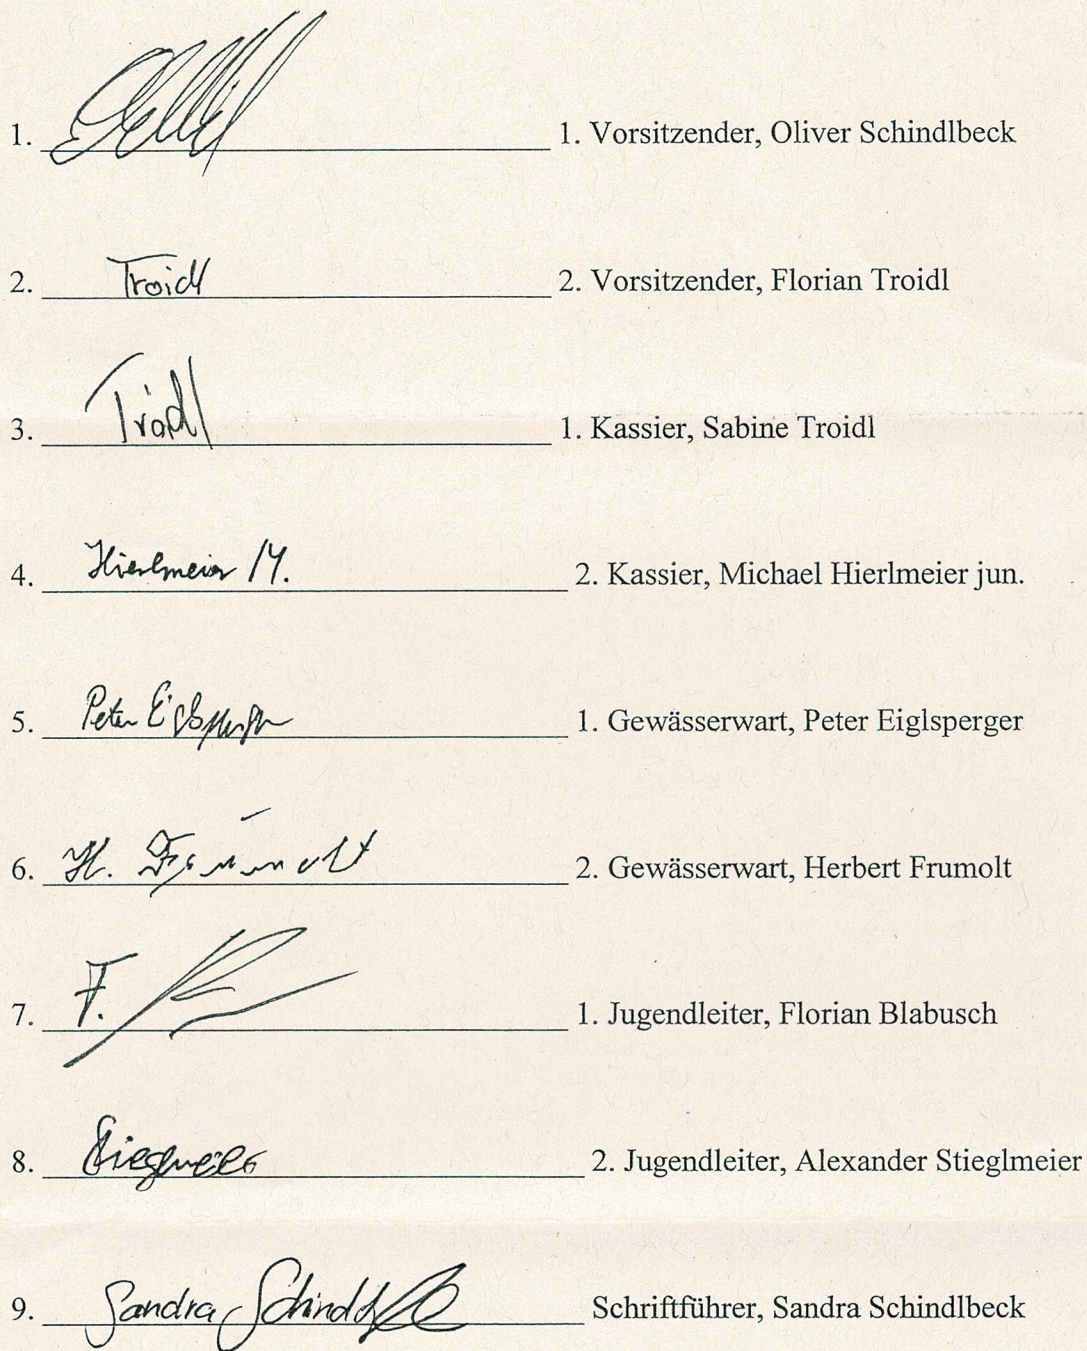 1. 1. Vorsitzender, Oliver Schindlbeck
2. Troidl 2. Vorsitzender, Florian Troidl
3. Troidl 1. Kassier, Sabine Troidl
4. Hierlmeier M. 2. Kassier, Michael Hierlmeier jun.
5. Peter Eiglsperger 1. Gewässerwart, Peter Eiglsperger
6. H. Frumolt 2. Gewässerwart, Herbert Frumolt
7. F. 1. Jugendleiter, Florian Blabusch
8. 2. Jugendleiter, Alexander Stieglmeier
9. Sandra Schindlbeck Schriftführer, Sandra Schindlbeck